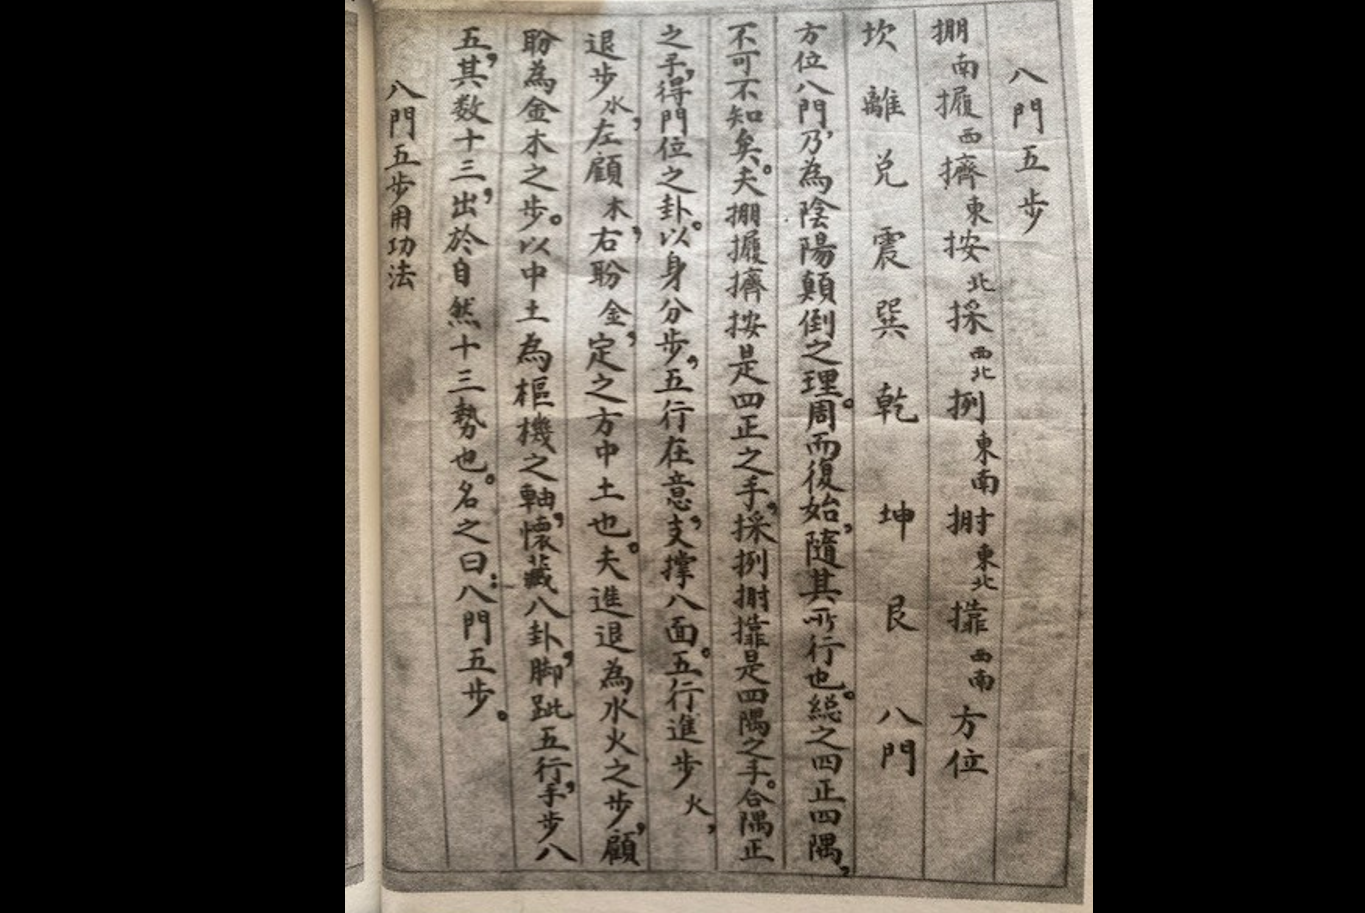 八門五步
掤南𢰅西擠東按北採西北挒東南𪮃東北㨆西南方位
坎離兌震巽乾坤艮八門
方位八門，乃為陰陽顛倒之理。周而復始，隨其所行也。総之四正四隅，
不可不知矣。夫掤𢰅擠按是四正之手，採挒𪮃㨆是四隅之手。合隅正
之手，得門位之卦。以身分步，五行在意，支撑八面。五行進步火，
退步水，左顧木，右盼金，定之方中土也。夫進退為水火之步，顧
盼為金木之步。以中土為樞機之軸，懷藏八卦，脚跐五行，手步八
五，其数十三，出於自然十三勢也。名之曰：八門五步。
八門五步用功法